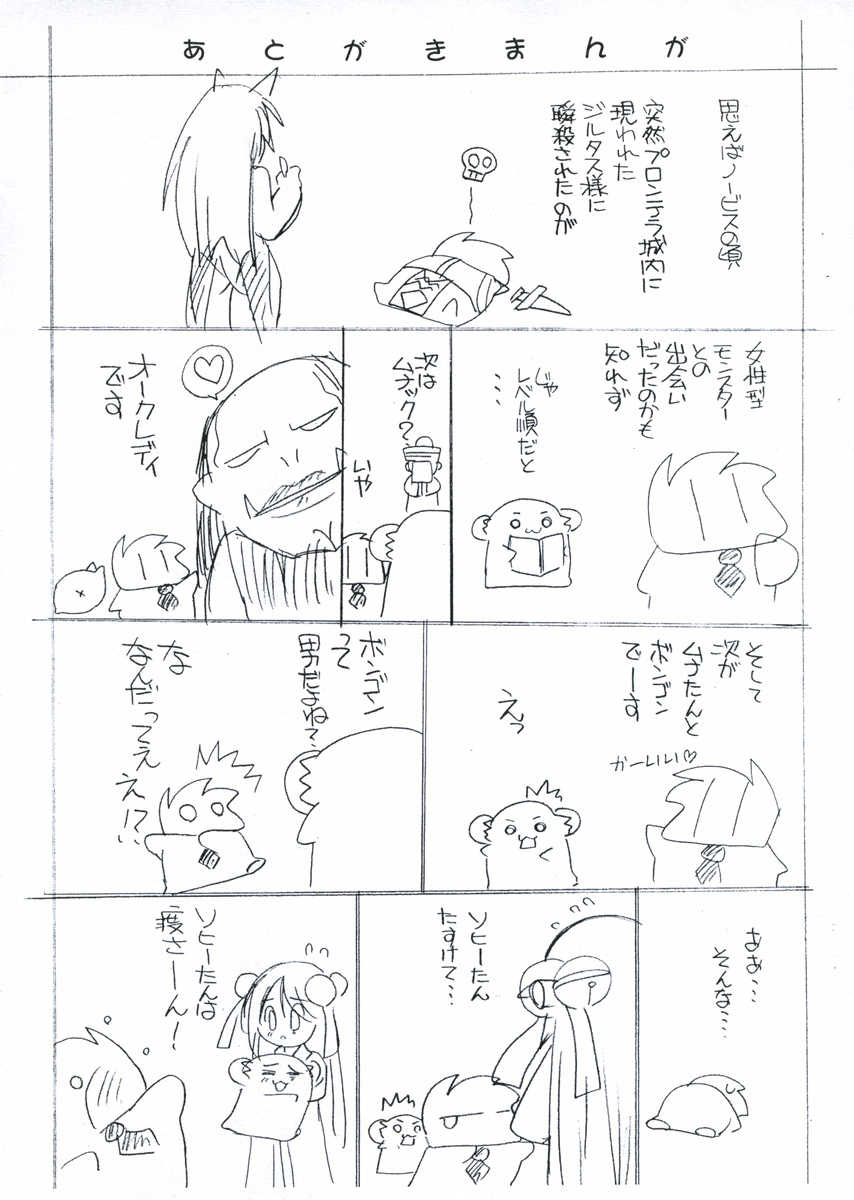 あとがきまんが
思えばノービスの頃
突然プロンテラ城内に
現われた
ジルタス様に
瞬殺されたのが
女性型
モンスター
との
出会い
だったのかも
知れず
じゃ
レベル順だと
・・・
次は
ムナック?
いや
オークレディ
です
そして
次が
ムナたんと
ボンゴン
でーす
かーいい♡
えっ
ボンゴン
って
男だよね?
な
なんだってええ!?
ああ・・・
そんな・・・
ソヒーたん
たすけて・・・
ソヒーたんは
渡さーん!